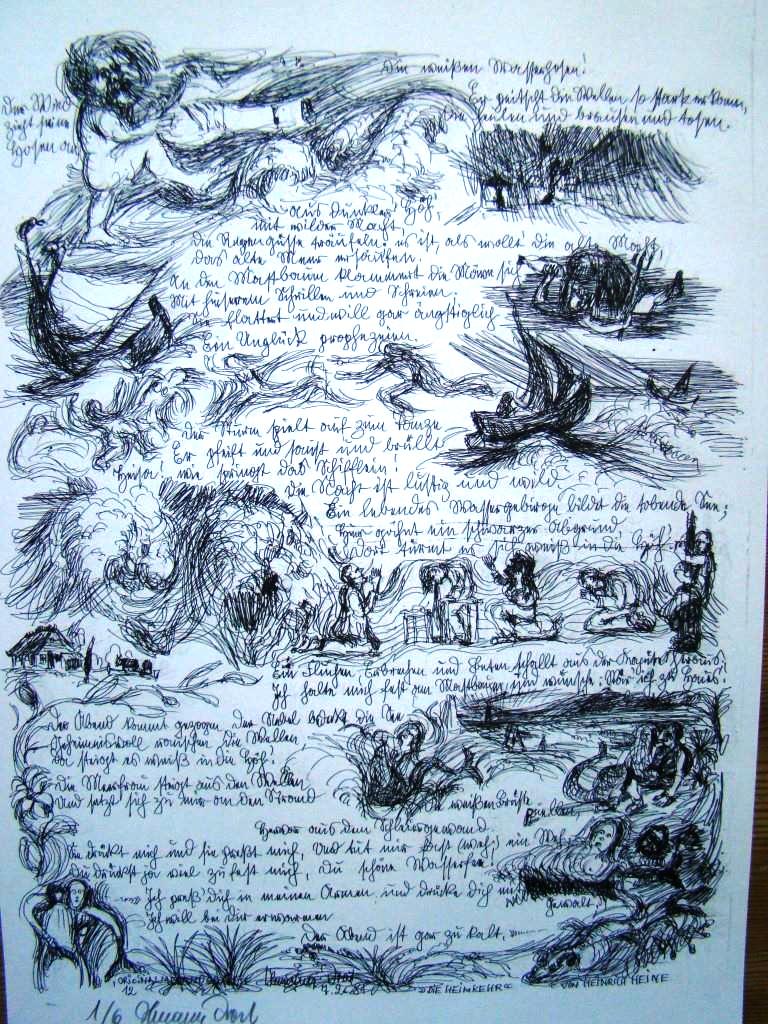 Der Wind
zieht seine
Hosen an
Die weißen Wasserhosen!
Er peitscht die Wellen so stark er kann,
Die heulen und brausen und tosen.
aus dunkler Höh',
mit wilder Macht,
Die Regengüsse träufeln; es ist, als wollt' die alte Nacht,
Das alte Meer ersäufen.
An den Mastbaum klammert die Möwe sich
Mit heiserem Schrillen und Schreien;
Sie flattert und will gar ängstiglich
Ein Unglück prophezeien.
Der Sturm spielt auf zum Tanze
Er pfeift und saust und brüllt
Heisa! wie springt das Schifflein!
Die Nacht ist lustig und wild
Ein lebendes Wassergebirge bildet die tobende See;
Hier gähnt ein schwarzer Abgrund
Dort türmt es sich weiß in die Höh'.
Ein Fluchen, Erbrechen und Beten schallt aus der Kajüte heraus;
Ich halte mich fest am Mastbaum, und wünsche: Wär ich zu Haus!
Der Abend kommt gezogen, Der Nebel bedeckt die See
Geheimnisvoll rauschen die Wellen,
Da steigt es weiß in die Höh'.
Die Meerfrau steigt aus den Wellen
Und setzt sich zu mir an den Strand
Die weißen Brüste
quellen
Hervor aus dem Schleiergewand.
Sie drückt mich und sie preßt mich, Und tut mir fast weh; ein Weh,
Du drückst ja viel zu fest mich, Du schöne Wasserfee!
Ich preß' dich in meinen Armen, und drücke Dich mit
Gewalt,
Ich will bei dir erwarmen
Der Abend ist gar zu kalt,
12
»DIE HEIMKEHR«
VON HEINRICH HEINE
1/6